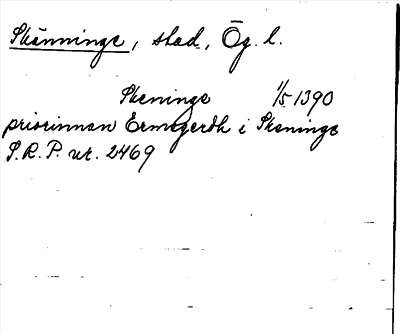 Skänninge, stad, Ög. l.
Skeninge 1/5 1390
priorinnan Ermegerdh i Skeninge
S.R.P. nr. 2469